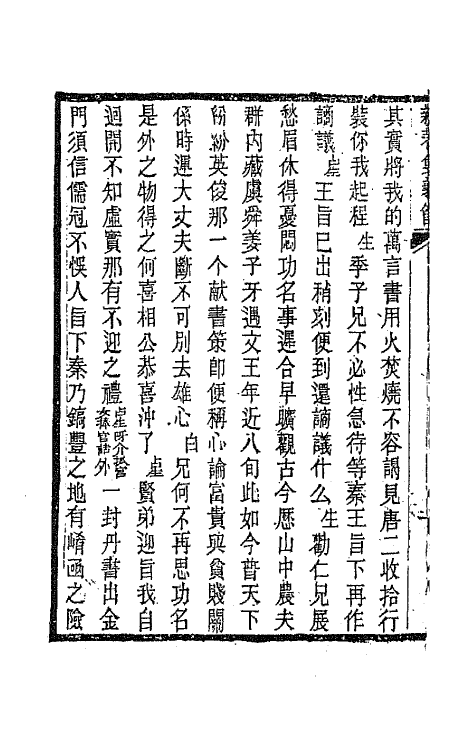 其實將我的萬言書用火焚燒不容謁見唐二收拾行
裝你我起程生季子兄不必性急待等秦王旨下再作
謫議崖王旨已出稍刻便到還謫議什么生勸仁兄展
愁眉休得憂悶功名事遲合早曠觀古今歷山中農夫
群內藏虞舜姜子牙遇文王年近八旬此如今普天下
紛紛英俊那一个献書策即便稱心論富貴與貧賤關
係時運大丈夫斷不可別去雄心白兄何不再思功名
是外之物得之何喜相公恭喜沖了崖賢弟迎旨我自
迴開不知虛實那有不迎之禮一封丹書出金
門須信儒冠不悞人旨下秦乃鎬豐之地有崤凾之險